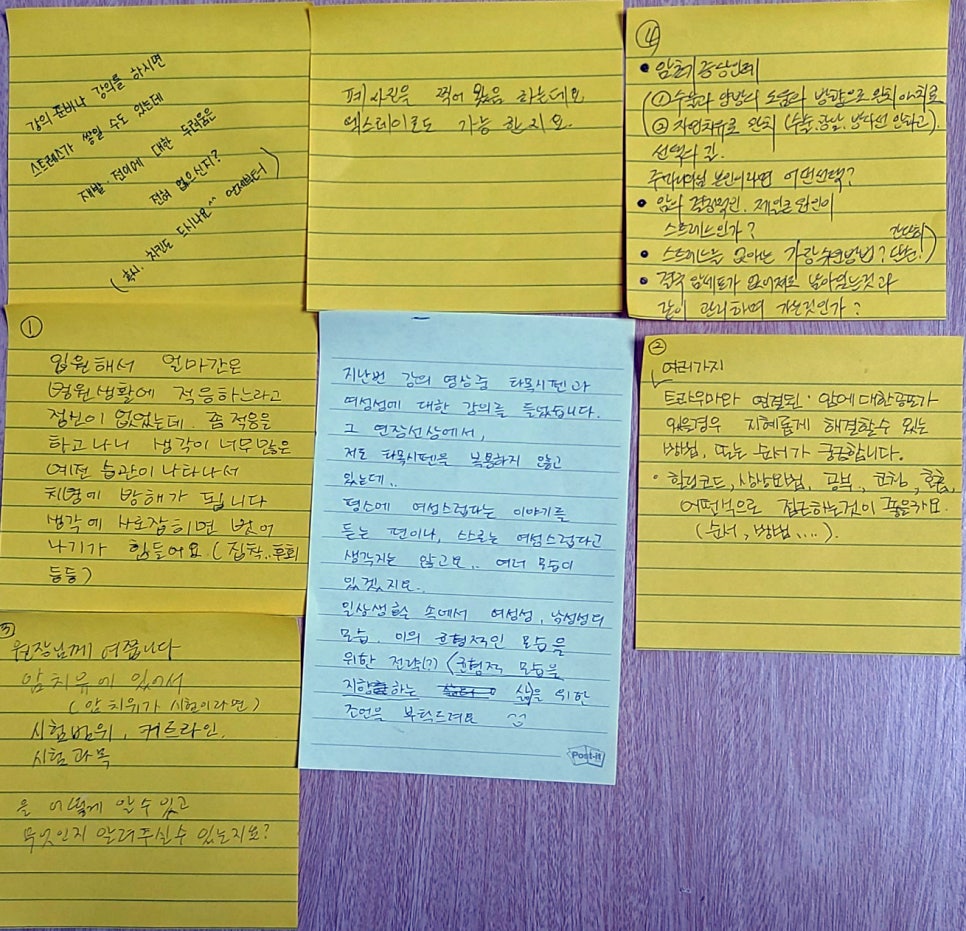 강의 준비나 강의를 하시면
스트레스가 쌓일 수도 있는데
재발 전이에 대한 두려움은
전혀 없으신지?
(혹시, 치킨도 드시나요^^ 언제부터)
폐 사진을 찍어 봤음 하는데요
엑스레이로도 가능 한지요.
④
• 암초기 증상인데
(① 수술과 양방의 도움의 방향으로 완치
② 자연치유로 완치 (수술, 항암, 방사선 안하고).
선택의 길.
본인이라면 어떤선택?
• 암의 결정적인. 제일큰 원인이
스트레스인가?
• 스트레스를 없애는 가장 방법? 간단히
• 결국 암세포가 없어져도 남아있는것과
같이 관리하며 가는것인가?
①
입원해서 얼마간은
병원생활에 적응하느라고
정신이 없었는데. 좀 적응을
하고 나니 생각이 너무많은
예전 습관이 나타나서
치병에 방해가 됩니다
생각에 사로잡히면 벗어
나기가 힘들어요. (집착..후회
등등)
지난번 강의 영상중 타목시펜과
여성성에 대한 강의를 들었습니다.
그 연장선상에서,
저도 타목시펜을 복용하지 않고
있는데..
평소에 여성스럽다는 이야기를
듣는 편이나, 스스로는 여성스럽다고
생각지는 않고요.. 여러 모습이
있겠지요..
일상생활 속에서 여성성, 남성성의
모습. 이의 균형적인 모습을
위한 전략(?) (균형적 모습을
지향하는 삶)을 위한
조언을 부탁드려요
Post-it
②
여러가지
트라우마와 연결된 · 암에 대한공포가
있을경우 지혜롭게 해결할수 있는
방법, 또는 순서가 궁금합니다.
• 힐링코드, 상상요법, 공부, 코칭, 호흡,
어떤식으로 접근하는것이 좋을까요.
(순서, 방법, ....).
③
원장님께 여쭙니다
암 치유에 있어서
(암 치유가 시험이라면)
시험범위, 커트라인,
시험과목
을 어떻게 알수 있고
무엇인지 알려주실수 있는지요?